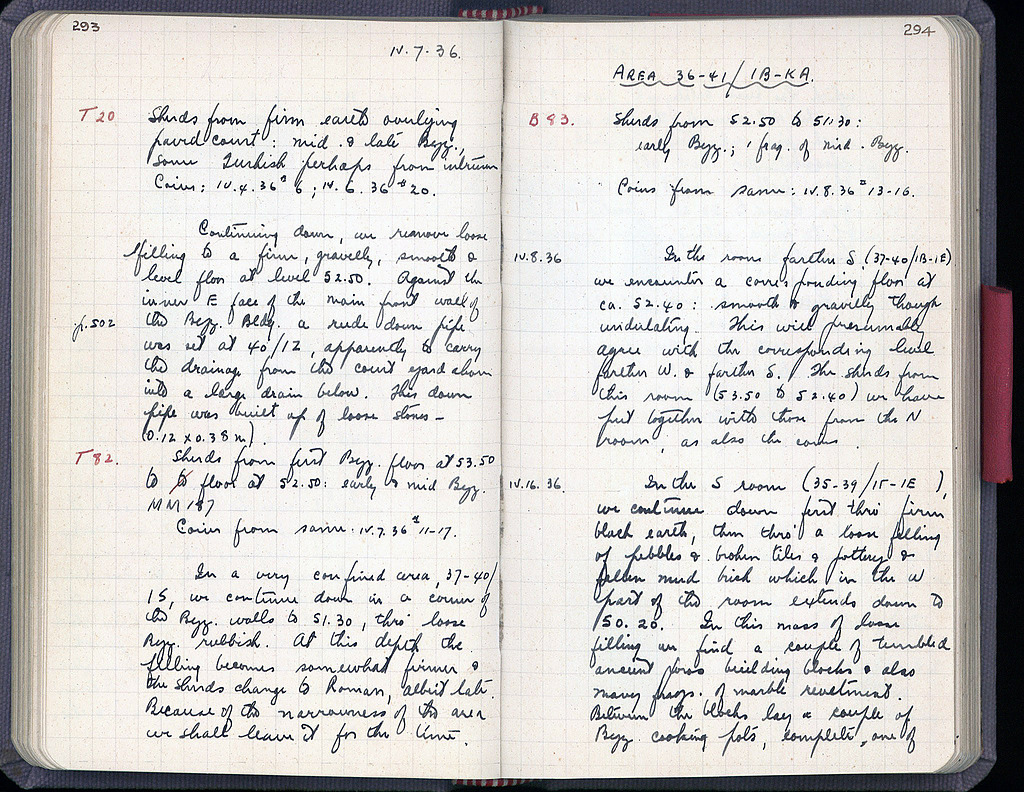 293
IV.7.36.
T 20 Sherds from firm earth overlying
paved court: mid. & late Byz.,
some Turkish perhaps from intrusion
Coins: IV.4.36 # 6; IV.6.36 # 20.
Continuing down, we remove loose
filling to a firm, gravelly, smooth &
level floor at level 52.50. Against the
inner E face of the main front wall of
p.502 the Byz. Bldg. a rude down pipe
was set at 40/12, apparently to carry
the drainage from the court yard above
into a large drain below. This down
pipe was built up of loose stones –
(0.12 x 0.38 m).
T 82. Sherds from first Byz. floor at 53.50
to floor at 52.50: early & mid Byz.
MM 187
Coins from same: IV.7.36 # 11-17.
In a very confined area, 37-40/
15, we continue down in a corner of
the Byz. walls to 51.30, thro' loose
Byz. rubbish. At this depth the
filling becomes somewhat firmer &
the sherds change to Roman, albeit late.
Because of the narrowness of the area
we shall leave it for the time.
294
AREA 36-41/1B-KA.
B 83. Sherds from 52.50 to 51.30:
early Byz.; 1 frag. of mid. Byz.
Coins from same: IV.8.36 # 13-16.
IV.8.36 In the room farther S. (37-40/1B-1E)
we encounter a corresponding floor at
ca. 52.40: smooth & gravelly though
undulating. This will presumably
agree with the corresponding level
farther W. & farther S. The sherds from
this room (53.50 to 52.40) we have
put together with those from the N
room, as also the coins.
IV.16.36. In the S room (35-39/1F-1E),
we continue down first thro' firm
black earth, then thro' a loose filling
of pebbles & broken tiles & pottery &
fallen mud brick which in the W
part of the room extends down to
50.20. In this mass of loose
filling we find a couple of tumbled
ancient poros building blocks & also
many frags. of marble revetment.
Between the blocks lay a couple of
Byz. cooking pots, complete, one of